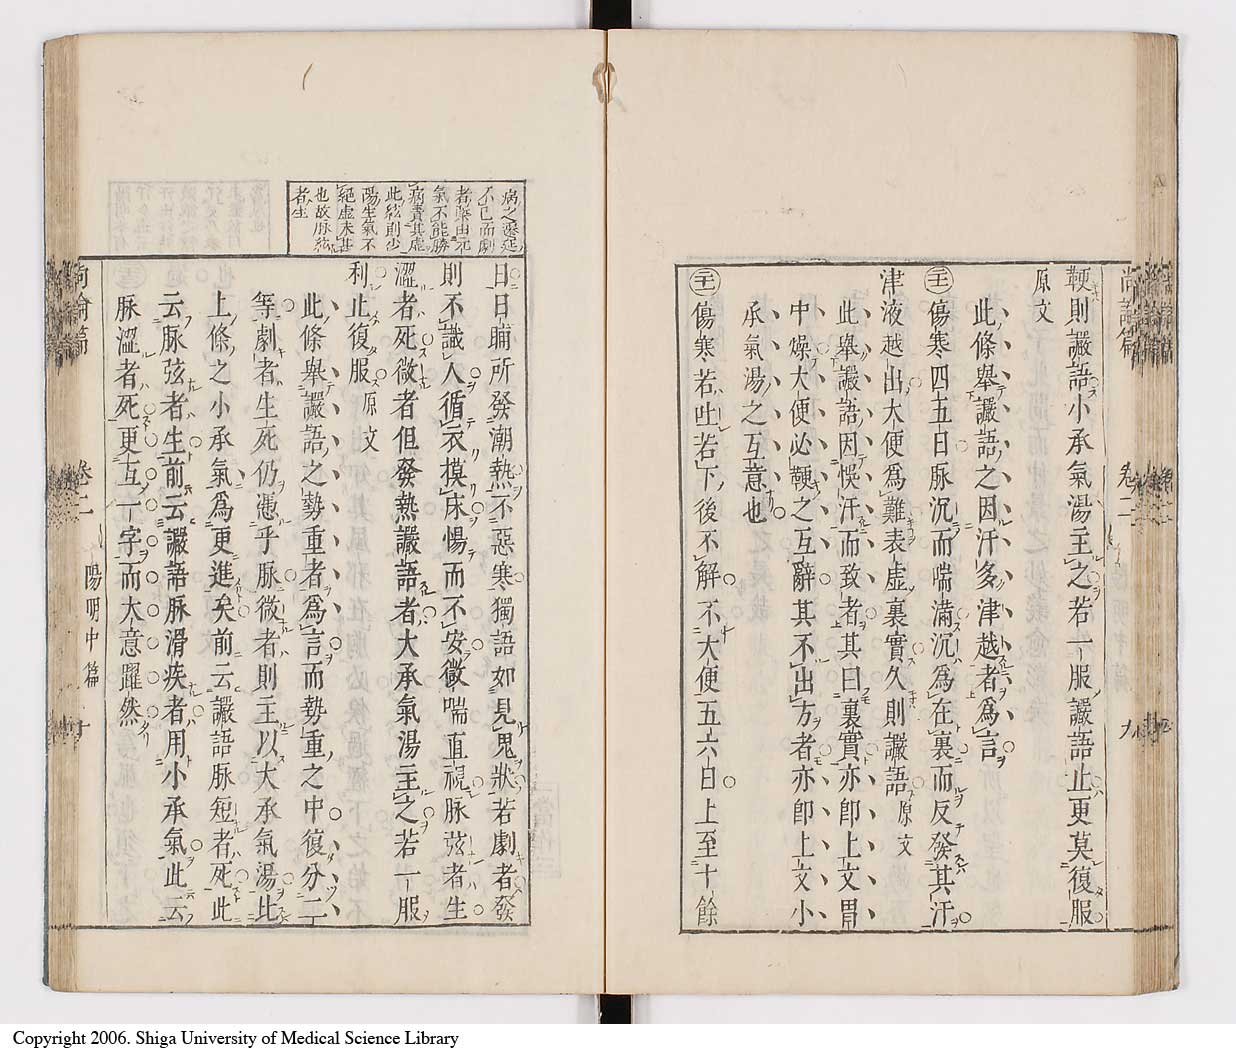 鞕則讝語小承氣湯主之若一服讝語止更莫復服
原文
此條舉讝語之因汗多津越者爲言
傷寒四五日脉沉而喘滿沉爲在裏而反發其汗
津液越出大便爲難表虛裏實久則讝語原文
此舉讝語因悞汗而致者其曰裏實亦卽上文胃
中燥大便必鞕之互辭其不出方者亦卽上文小
承氣湯之互意也
傷寒若吐若下後不解不大便五六日上至十餘
尚論篇 卷二 九
病之遷延
不已而劇
者槩由元
氣不能勝
病責其虛
此絃則少
陽生氣不
絕虛未甚
也故脉絃
者生
日日晡所發潮熱不惡寒獨語如見鬼狀若劇者發
則不識人循衣摸床惕而不安微喘直視脉弦者生
澀者死微者但發熱讝語者大承氣湯主之若一服
利止復服原文
此條舉讝語之勢重者爲言而勢重之中復分二
等劇者生死仍憑乎脉微者則主以大承氣湯比
上條之小承氣爲更進矣前云讝語脉短者死此
云脉弦者生前云讝語脉滑疾者用小承氣此云
脉澀者死更互一字而大意躍然
尚論篇 卷二 陽明中篇 十
Copyright 2006. Shiga University of Medical Science Library